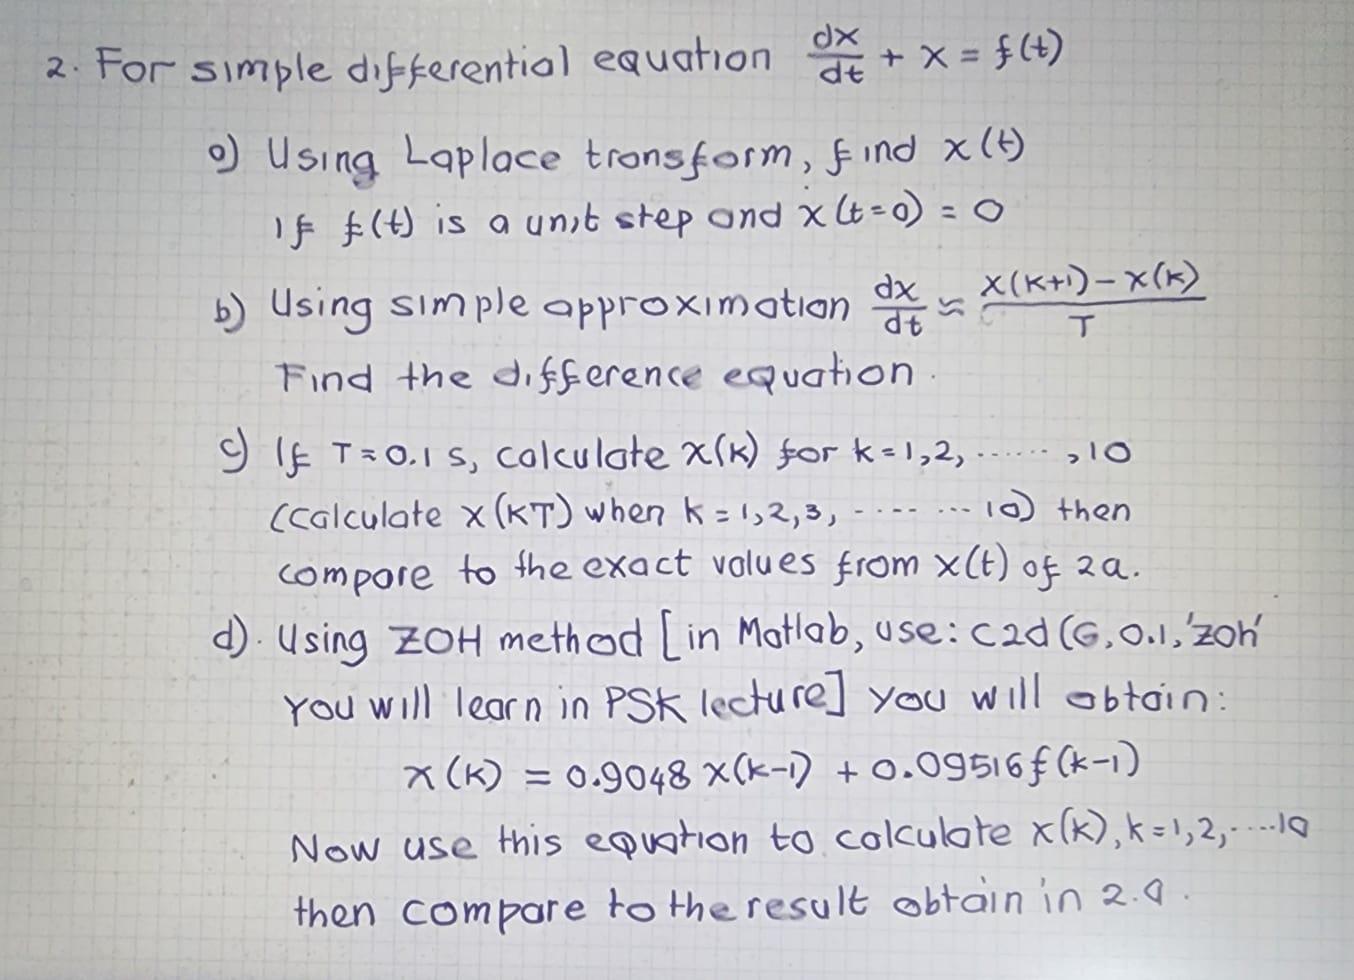 2. For simple differential equation dx/dt + x = f(t)
a) Using Laplace transform, find x(t)
If f(t) is a unit step and x(t=0) = 0
b) Using simple approximation dx/dt ≈ x(k+1) - x(k) / T
Find the difference equation.
c) If T=0.1 s, calculate x(k) for k=1,2, ......, 10
(calculate x(kT) when k=1,2,3, ........ 10) then
compare to the exact values from x(t) of 2a.
d). Using ZOH method [in Matlab, use: c2d(G,0.1,'zoh'
you will learn in PSK lecture] you will obtain:
x(k) = 0.9048 x(k-1) + 0.09516 f(k-1)
Now use this equation to calculate x(k), k=1,2,.....10
then compare to the result obtain in 2.a.